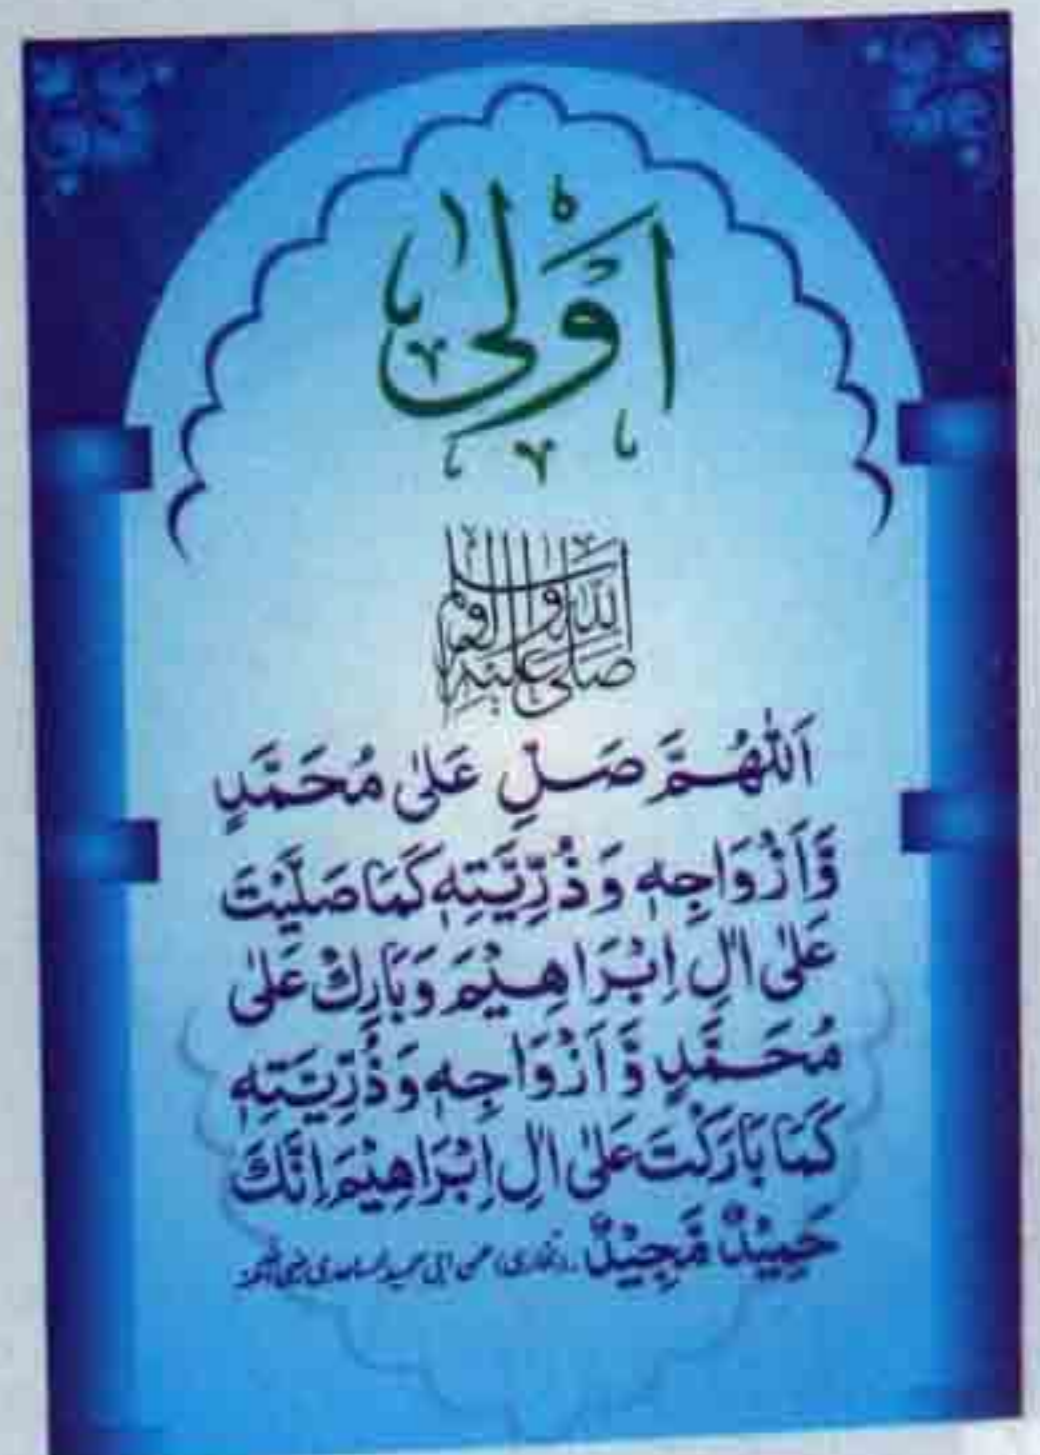 اَوْلٰى
صَلَّى اللّٰهُ عَلَيْهِ وَاٰلِهٖ وَسَلَّم
اَللّٰهُمَّ صَلِّ عَلٰى مُحَمَّدٍ
وَّاَزْوَاجِهٖ وَذُرِّيَّتِهٖ كَمَا صَلَّيْتَ
عَلٰى اٰلِ اِبْرَاهِيْمَ وَبَارِكْ عَلٰى
مُحَمَّدٍ وَّاَزْوَاجِهٖ وَذُرِّيَّتِهٖ
كَمَا بَارَكْتَ عَلٰى اٰلِ اِبْرَاهِيْمَ اِنَّكَ
حَمِيْدٌ مَّجِيْدٌ ۔ (بخاری، عن ابی حمید الساعدی رضی اللہ عنہ